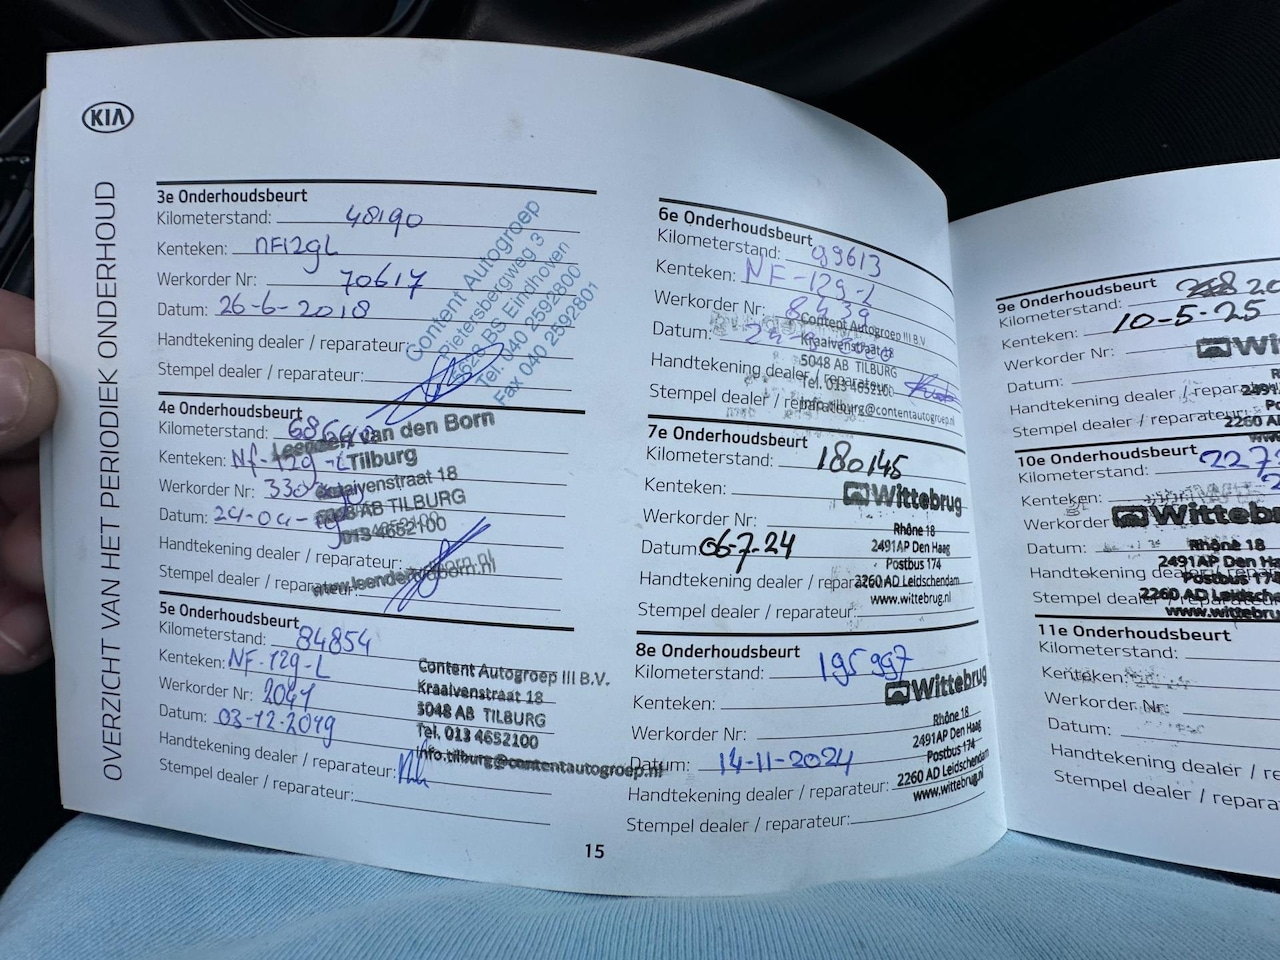 KIA
OVERZICHT VAN HET PERIODIEK ONDERHOUD
3e Onderhoudsbeurt
Kilometerstand: 48190
Kenteken: nF12gL
Werkorder Nr: 70617
Datum: 26-6-2018
Handtekening dealer / reparateur:
Stempel dealer / reparateur:
Content Autogroep
Pietersbergweg 3
5628 BS Eindhoven
Tel. 040 2592800
Fax 040 2592801
4e Onderhoudsbeurt
Kilometerstand:
Kenteken: Nf-12g-L
Werkorder Nr:
Datum: 24-04-
Handtekening dealer / reparateur:
Stempel dealer / reparateur:
Leendert van den Born
Tilburg
Kraaivenstraat 18
5048 AB TILBURG
013 4652100
5e Onderhoudsbeurt
Kilometerstand: 84854
Kenteken: NF-12g-L
Werkorder Nr: 2041
Datum: 03-12-2019
Handtekening dealer / reparateur:
Stempel dealer / reparateur:
Content Autogroep III B.V.
Kraaivenstraat 18
5048 AB TILBURG
Tel. 013 4652100
info.tilburg@contentautogroep.nl
6e Onderhoudsbeurt
Kilometerstand: 99613
Kenteken: NF-12g-L
Werkorder Nr: 8439
Datum:
Handtekening dealer / reparateur:
Stempel dealer / reparateur:
Content Autogroep III B.V.
Kraaivenstraat 18
5048 AB TILBURG
Tel. 013 4652100
info.tilburg@contentautogroep.nl
7e Onderhoudsbeurt
Kilometerstand: 180145
Kenteken:
Werkorder Nr:
Datum: 06-7-24
Handtekening dealer / reparateur:
Stempel dealer / reparateur:
Wittebrug
Rhône 18
2491AP Den Haag
Postbus 174
2260 AD Leidschendam
www.wittebrug.nl
8e Onderhoudsbeurt
Kilometerstand: 195997
Kenteken:
Werkorder Nr:
Datum: 14-11-2024
Handtekening dealer / reparateur:
Stempel dealer / reparateur:
Wittebrug
Rhône 18
2491AP Den Haag
Postbus 174
2260 AD Leidschendam
www.wittebrug.nl
15
9e Onderhoudsbeurt
Kilometerstand:
Kenteken: 10-5-25
Werkorder Nr:
Datum:
Handtekening dealer /
Stempel dealer / reparateur:
10e Onderhoudsbeurt
Kilometerstand:
Kenteken:
Werkorder
Datum:
Handtekening dealer
Stempel dealer
Wittebr
Rhône 18
2491AP Den Ha
Postbus 174
2260 AD Leidsche
www.wittebru
11e Onderhoudsbeurt
Kilometerstand:
Kenteken:
Werkorder Nr:
Datum:
Handtekening dealer /
Stempel dealer / repara